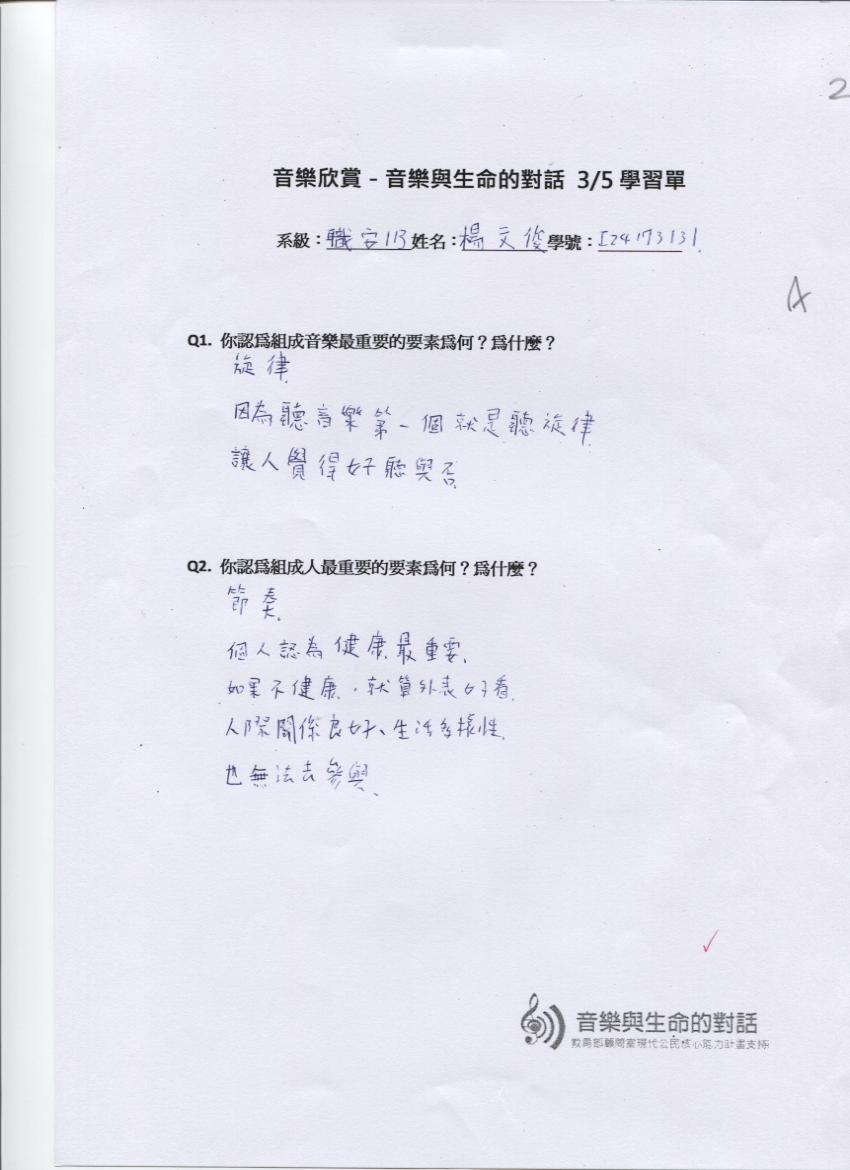 2
音樂欣賞 - 音樂與生命的對話 3/5 學習單
系級：職安113 姓名：楊文俊 學號：I24173131
A
Q1. 你認為組成音樂最重要的要素為何？為什麼？
旋律
因為聽音樂第一個就是聽旋律
讓人覺得好聽與否
Q2. 你認為組成人最重要的要素為何？為什麼？
節奏
個人認為健康最重要
如果不健康，就算外表好看
人際關係良好、生活多樣性
也無法去參與
音樂與生命的對話
教育部顧問室現代公民核心能力計畫支持